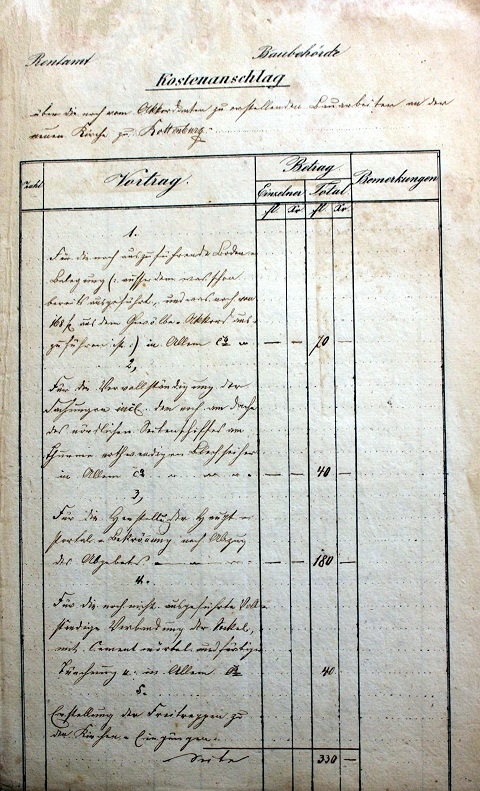 Rentamt Baubehörde
Kostenanschlag
über die noch vom Akkordanten zu erstellenden Bauarbeiten an der
neuen Kirche zu Kottenburg.
Zahl Vortrag. Betrag Bemerkungen
Einzelner Total
fl. Xr. fl. Xr.
1.
Für die noch auszuführende Boden-
Belegung (: außer dem was schon
bereits ausgeführt, und was noch von
168 f aus dem Gewölbe-Akkord aus-
zuführen ist :) in Allem ca — — 70 —
2,
Für die Vervollständigung der
incl. den noch am Dache
des nördlichen Seitenschiffes am
Thurme nothwendigen
in Allem ca — — 40 —
3,
Für die Herstellung der Haupt-
portal-Bekrönung nach Abzug
des Abgebots — — 180 —
4.
Für die noch nicht ausgeführte Voll-
ständige Verbandung der Sockel,
mit Cement und
in Allem ca 40
5.
Erstellung der Freitreppen zu
den Kirchen-Eingängen
Seite 330 —